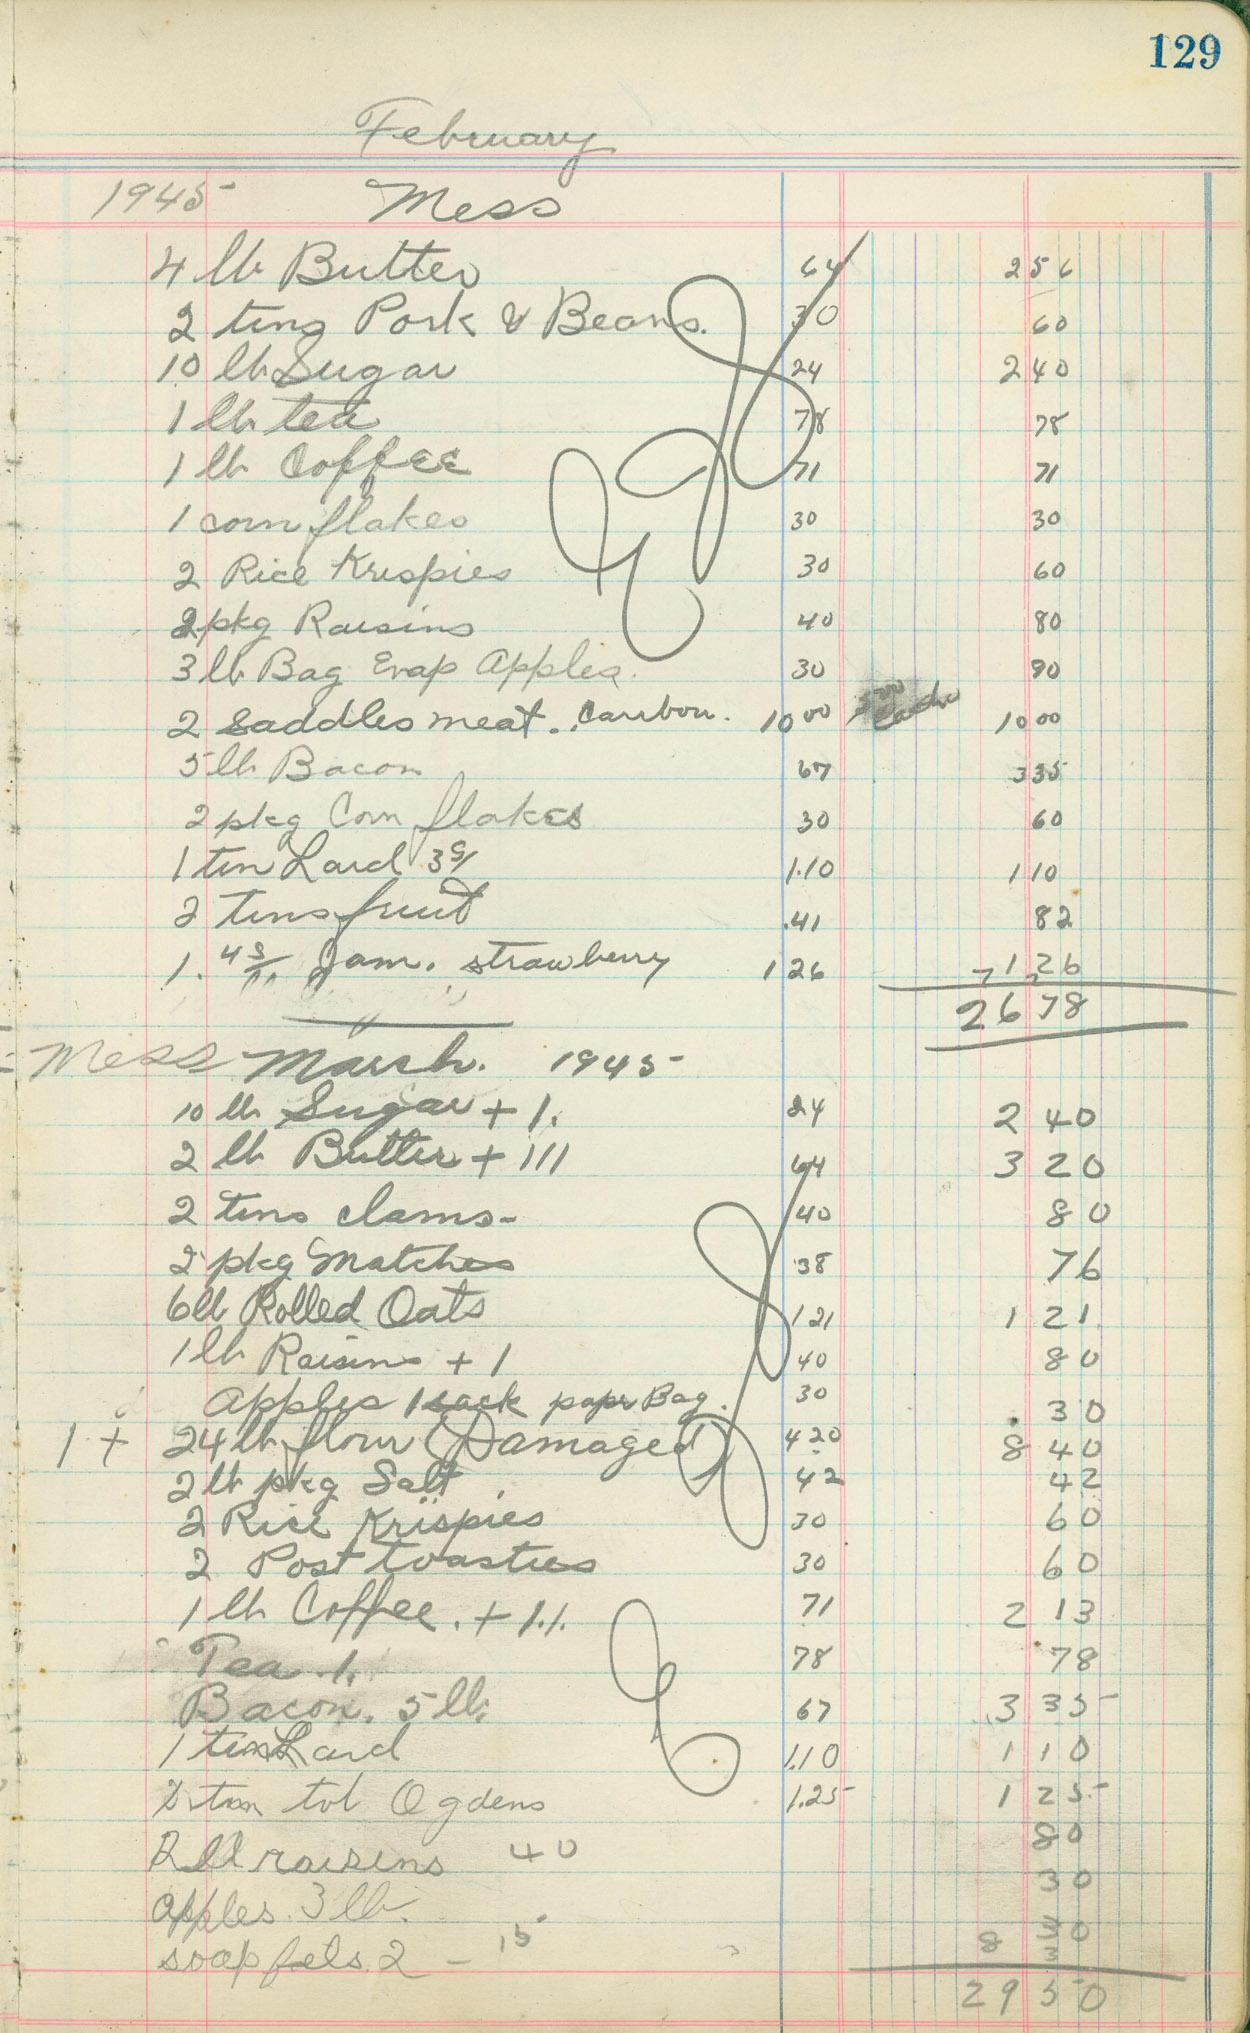 129
February
1945 Mess
4 lb Butter 64 256
2 tins Pork & Beans. 30 60
10 lb Sugar 24 240
1 lb tea 78 78
1 lb Coffee 71 71
1 corn flakes 30 30
2 Rice Krispies 30 60
2 pkg Raisins 40 80
3 lb Bag Evap Apples. 30 90
2 saddles meat. Caribou. 10 00 10 00
5 lb Bacon 67 335
2 pkg Corn flakes 30 60
1 tin Lard 3 1.10 1 10
2 tins fruit .41 82
1. 4 Jam. strawberry 1 26 1 26
26 78
Mess March. 1945
10 lb Sugar + 1. 24 2 40
2 lb Butter + 111 64 3 20
2 tins clams - 40 80
2 pkg Matches 38 76
6 lb Rolled Oats 1 21 1 21
1 lb Raisins + 1 40 80
Apples 1 sack paper Bag. 30 30
1 + 24 lb flour (Damaged) 4 20 8 40
2 lb pkg Salt 42 42
2 Rice Krispies 30 60
2 Post toasties 30 60
1 lb Coffee. + 1.1. 71 2 13
Tea 1. 78 78
Bacon. 5 lb. 67 3 35
1 tin Lard 1.10 1 10
tob Ogdens 1.25 1 25
2 lb raisins 40 80
apples. 3 lb. 30
soap fels. 2 - 15
29 50